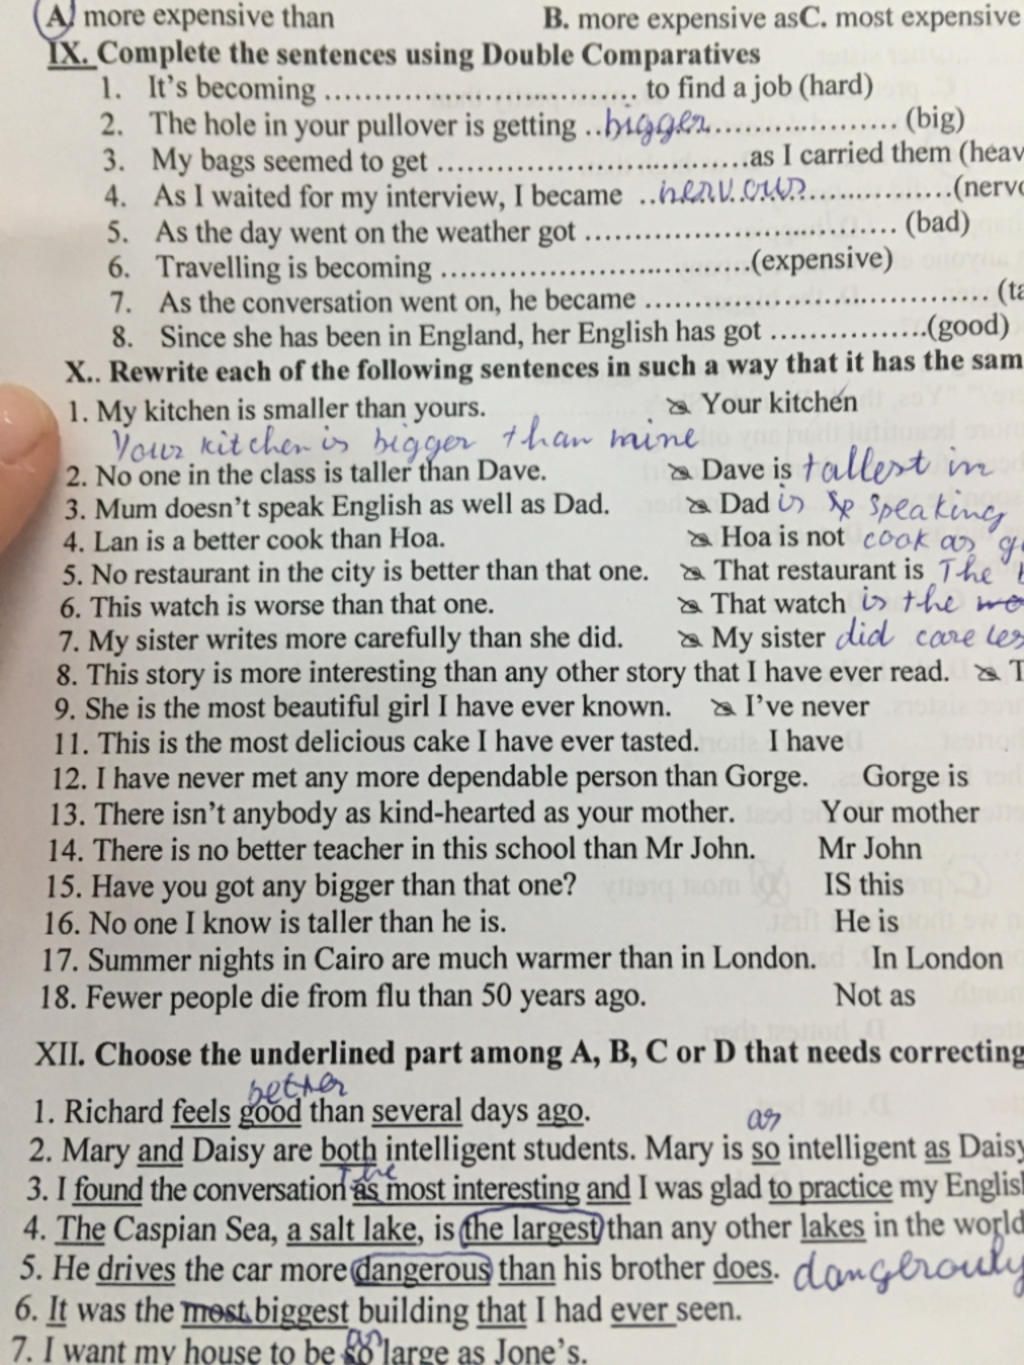 A. more expensive than B. more expensive as C. most expensive
IX. Complete the sentences using Double Comparatives
1. It's becoming .................................. to find a job (hard)
2. The hole in your pullover is getting ..bigger..................... (big)
3. My bags seemed to get .................................as I carried them (heav
4. As I waited for my interview, I became ..nervous................(nervo
5. As the day went on the weather got .................................. (bad)
6. Travelling is becoming .................................(expensive)
7. As the conversation went on, he became ..................................... (ta
8. Since she has been in England, her English has got .................(good)
X.. Rewrite each of the following sentences in such a way that it has the sam
1. My kitchen is smaller than yours. Your kitchen
Your kitchen is bigger than mine
2. No one in the class is taller than Dave. Dave is tallest in
3. Mum doesn't speak English as well as Dad. Dad is speaking
4. Lan is a better cook than Hoa. Hoa is not cook as g
5. No restaurant in the city is better than that one. That restaurant is The b
6. This watch is worse than that one. That watch is the
7. My sister writes more carefully than she did. My sister did careles
8. This story is more interesting than any other story that I have ever read. T
9. She is the most beautiful girl I have ever known. I've never
11. This is the most delicious cake I have ever tasted. I have
12. I have never met any more dependable person than Gorge. Gorge is
13. There isn't anybody as kind-hearted as your mother. Your mother
14. There is no better teacher in this school than Mr John. Mr John
15. Have you got any bigger than that one? IS this
16. No one I know is taller than he is. He is
17. Summer nights in Cairo are much warmer than in London. In London
18. Fewer people die from flu than 50 years ago. Not as
XII. Choose the underlined part among A, B, C or D that needs correcting
better
1. Richard feels good than several days ago.
as
2. Mary and Daisy are both intelligent students. Mary is so intelligent as Daisy
the
3. I found the conversation as most interesting and I was glad to practice my English
4. The Caspian Sea, a salt lake, is the largest than any other lakes in the world
5. He drives the car more dangerous than his brother does. dangerously
6. It was the most biggest building that I had ever seen.
as
7. I want my house to be so large as Jone's.